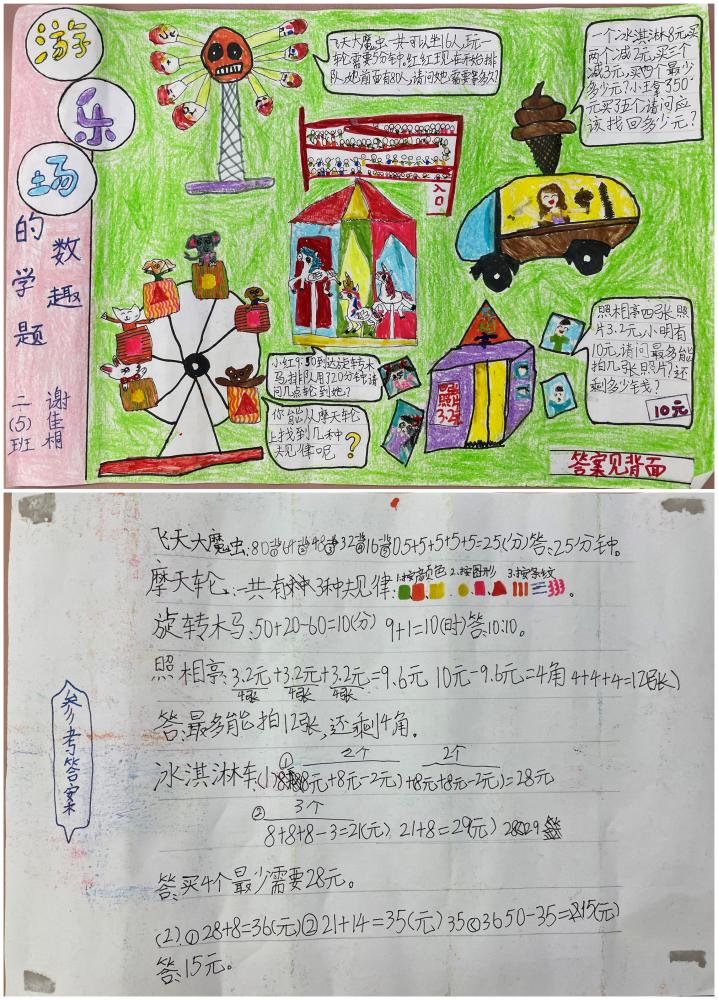 游
乐
场
的数
学趣
题
二(5)班
谢佳桐
飞天大魔虫一共可以坐16人,玩一
轮需要5分钟。红红现在开始排
队,她前面有80人,请问她需要等多久?
一个冰淇淋8元,买
两个减2元,买三个
减3元,买四个最少
多少元?小王拿350
元买3五个请问应
该找回多少元?
入口
小红9:50到达旋转木
马,排队用了20分钟,请
问几点轮到她?
你能从摩天轮
上找到几种
规律呢?
照相亭四张照
片3.2元,小明有
10元,请问最多能
拍几张照片?还
剩多少钱?
10元
3.2元
答案见背面
参考答案
飞天大魔虫:80 64 48 32 16 0 5+5+5+5+5=25(分)答:25分钟。
摩天轮:一共有3种规律:1.按颜色 2.按图形 3.按条纹
旋转木马:50+20-60=10(分) 9+1=10(时)答:10:10。
照相亭:3.2元+3.2元+3.2元=9.6元 10元-9.6元=4角 4+4+4=12(张)
4张 4张 4张
答:最多能拍12张,还剩4角。
① 2个 2个
冰淇淋车:(1)(8元+8元-2元)+(8元+8元-2元)=28元
② 3个
8+8+8-3=21(元) 21+8=29(元) 28<29
答:买4个最少需要28元。
(2)①28+8=36(元)②21+14=35(元) 35<36 50-35=15(元)
答:15元。